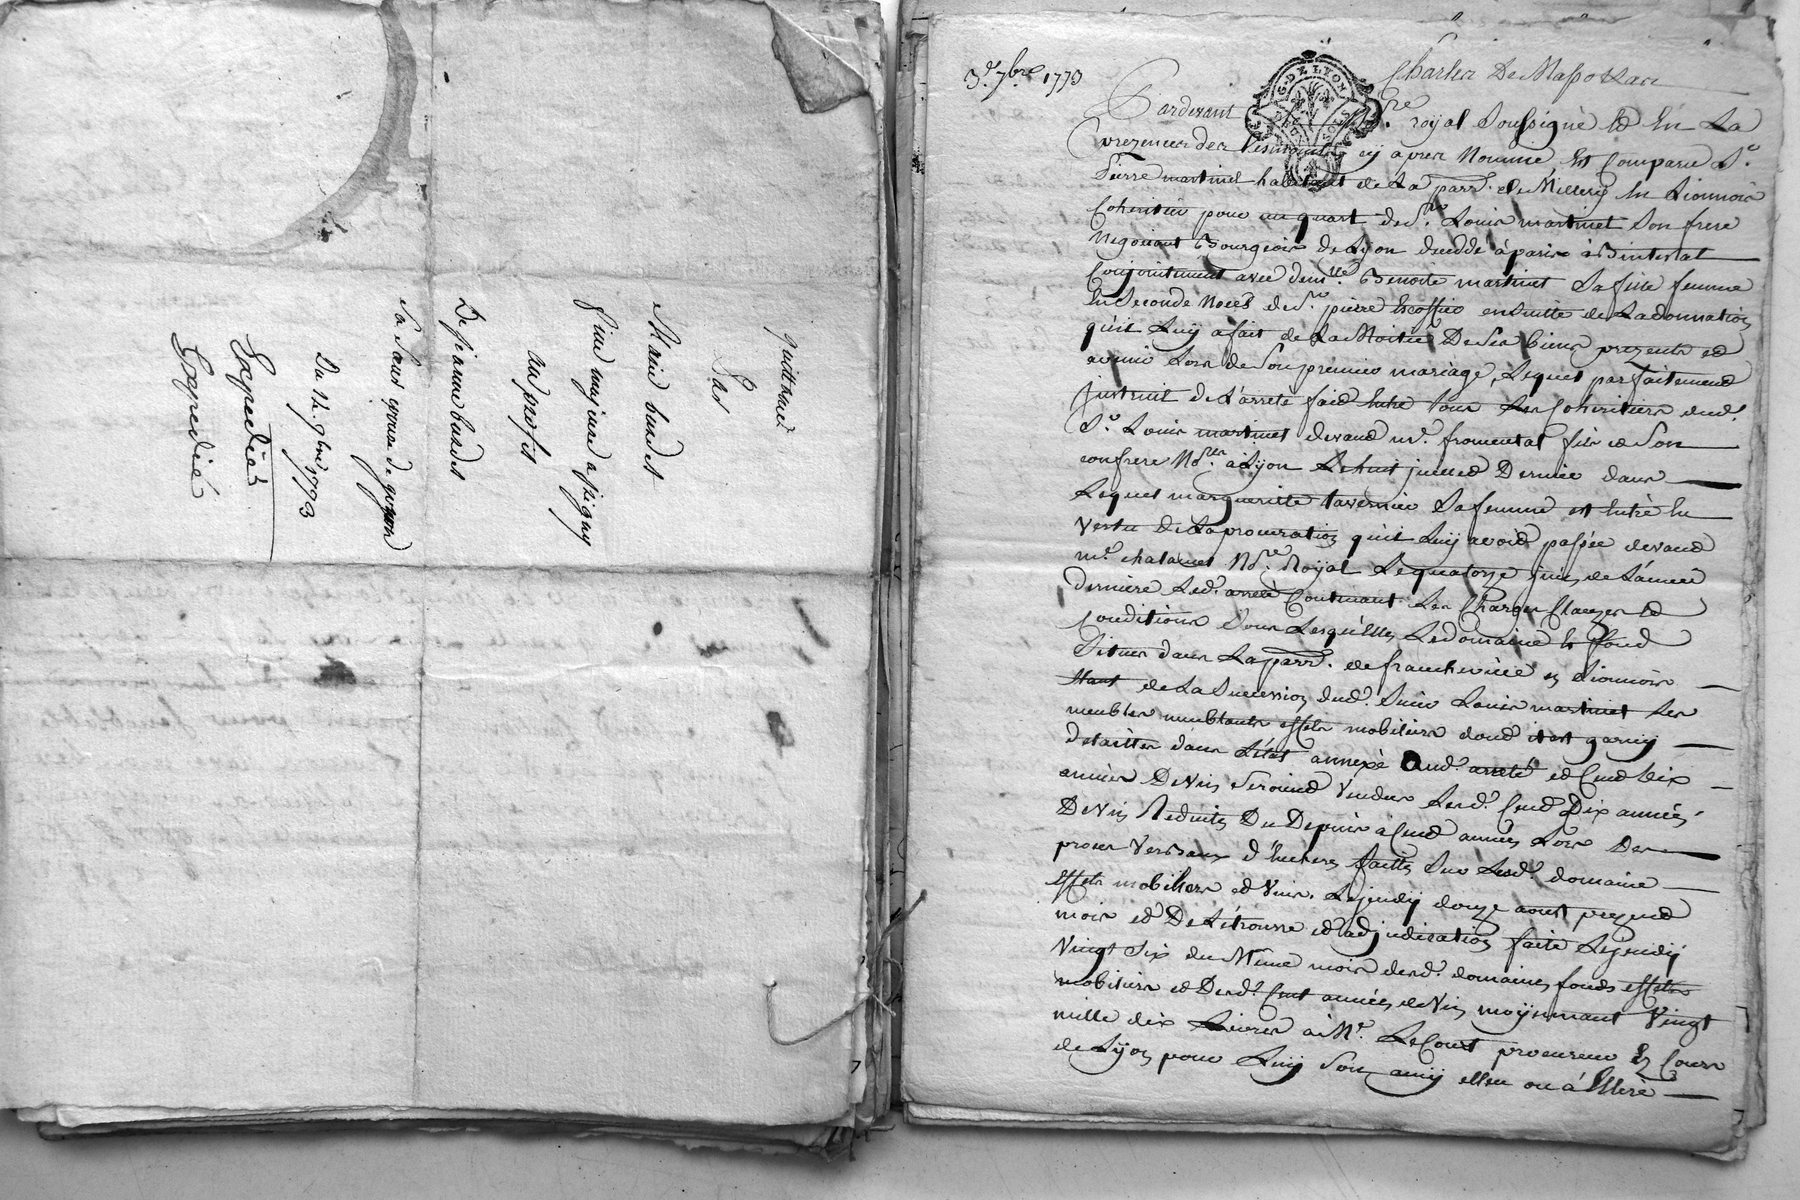 quittance
Par
Marie burdet
fille majeure a
au profit
De jeanne burdet
Sa Sœur
Du 12 9bre 1773
Expédiée
Expediée
3e. 7bre. 1773
Charles De
G. DE LYON
Pardevant le Nre. royal Soussigné Et En La
prezence des Temoins cy apres Nommé Est Comparu Sr.
Pierre martinet habitant de La parr. de Millery En Lionnois
Coheritier pour un quart de Sr. Louis martinet Son frere
Negotiant Bourgeois de Lyon decedé à paris abintestat
Conjointement avec demlle. Benoite martinet Sa fille femme
En Seconde Noces de Sr. pierre Escoffier ensuitte de La donnation
qu'il Luy a fait de La Moitié De Ses biens prezents et
avenir Lors de Son premier mariage, Lequel parfaitement
instruit de L'arreté fait Entre tous Les Coheritiers dudt.
Sr. Louis martinet devant me. fromental fils et Son
confrere Nores. à Lyon Le huit juillet Dernier dans
Lequel margueritte tavernier Sa femme est Entré En
Vertu de La procuration qu'il Luy avoit passée devant
me. chatanet Nre. Royal Le quatorze juin de L'année
derniere Ledt. arreté Contenant Les Charges Clauzes et
conditions Sous Lesquelles Le domaine Et fond
Situés dans La parr. de francheville en Lionnois
étant de La Succession dudt. Sieur Louis martinet Les
meubles meublants effets mobiliers dont il est garny
détaillés dans L'état annexé audt. arreté et Cent dix
années De Vin Seroient Vendus Lesdt. Cent Dix années
De Vin Reduites Du Depuis à Cent années Lors Des
proces Verbaux d'Encheres faittes Sur Ledt. domaine
Effets mobiliers et Vins, Le jeudy douze aoust prezent
mois et De L'étrousse et adjudication faite Le jeudy
Vingt Six du Même mois desdt. domaine, fonds effets
mobiliers et Desdt. Cent années de Vin moyennant Vingt
mille dix Livres à Me. LeCourt procureur Es Cours
de Lyon pour Luy Son amy elleu ou à Elliré